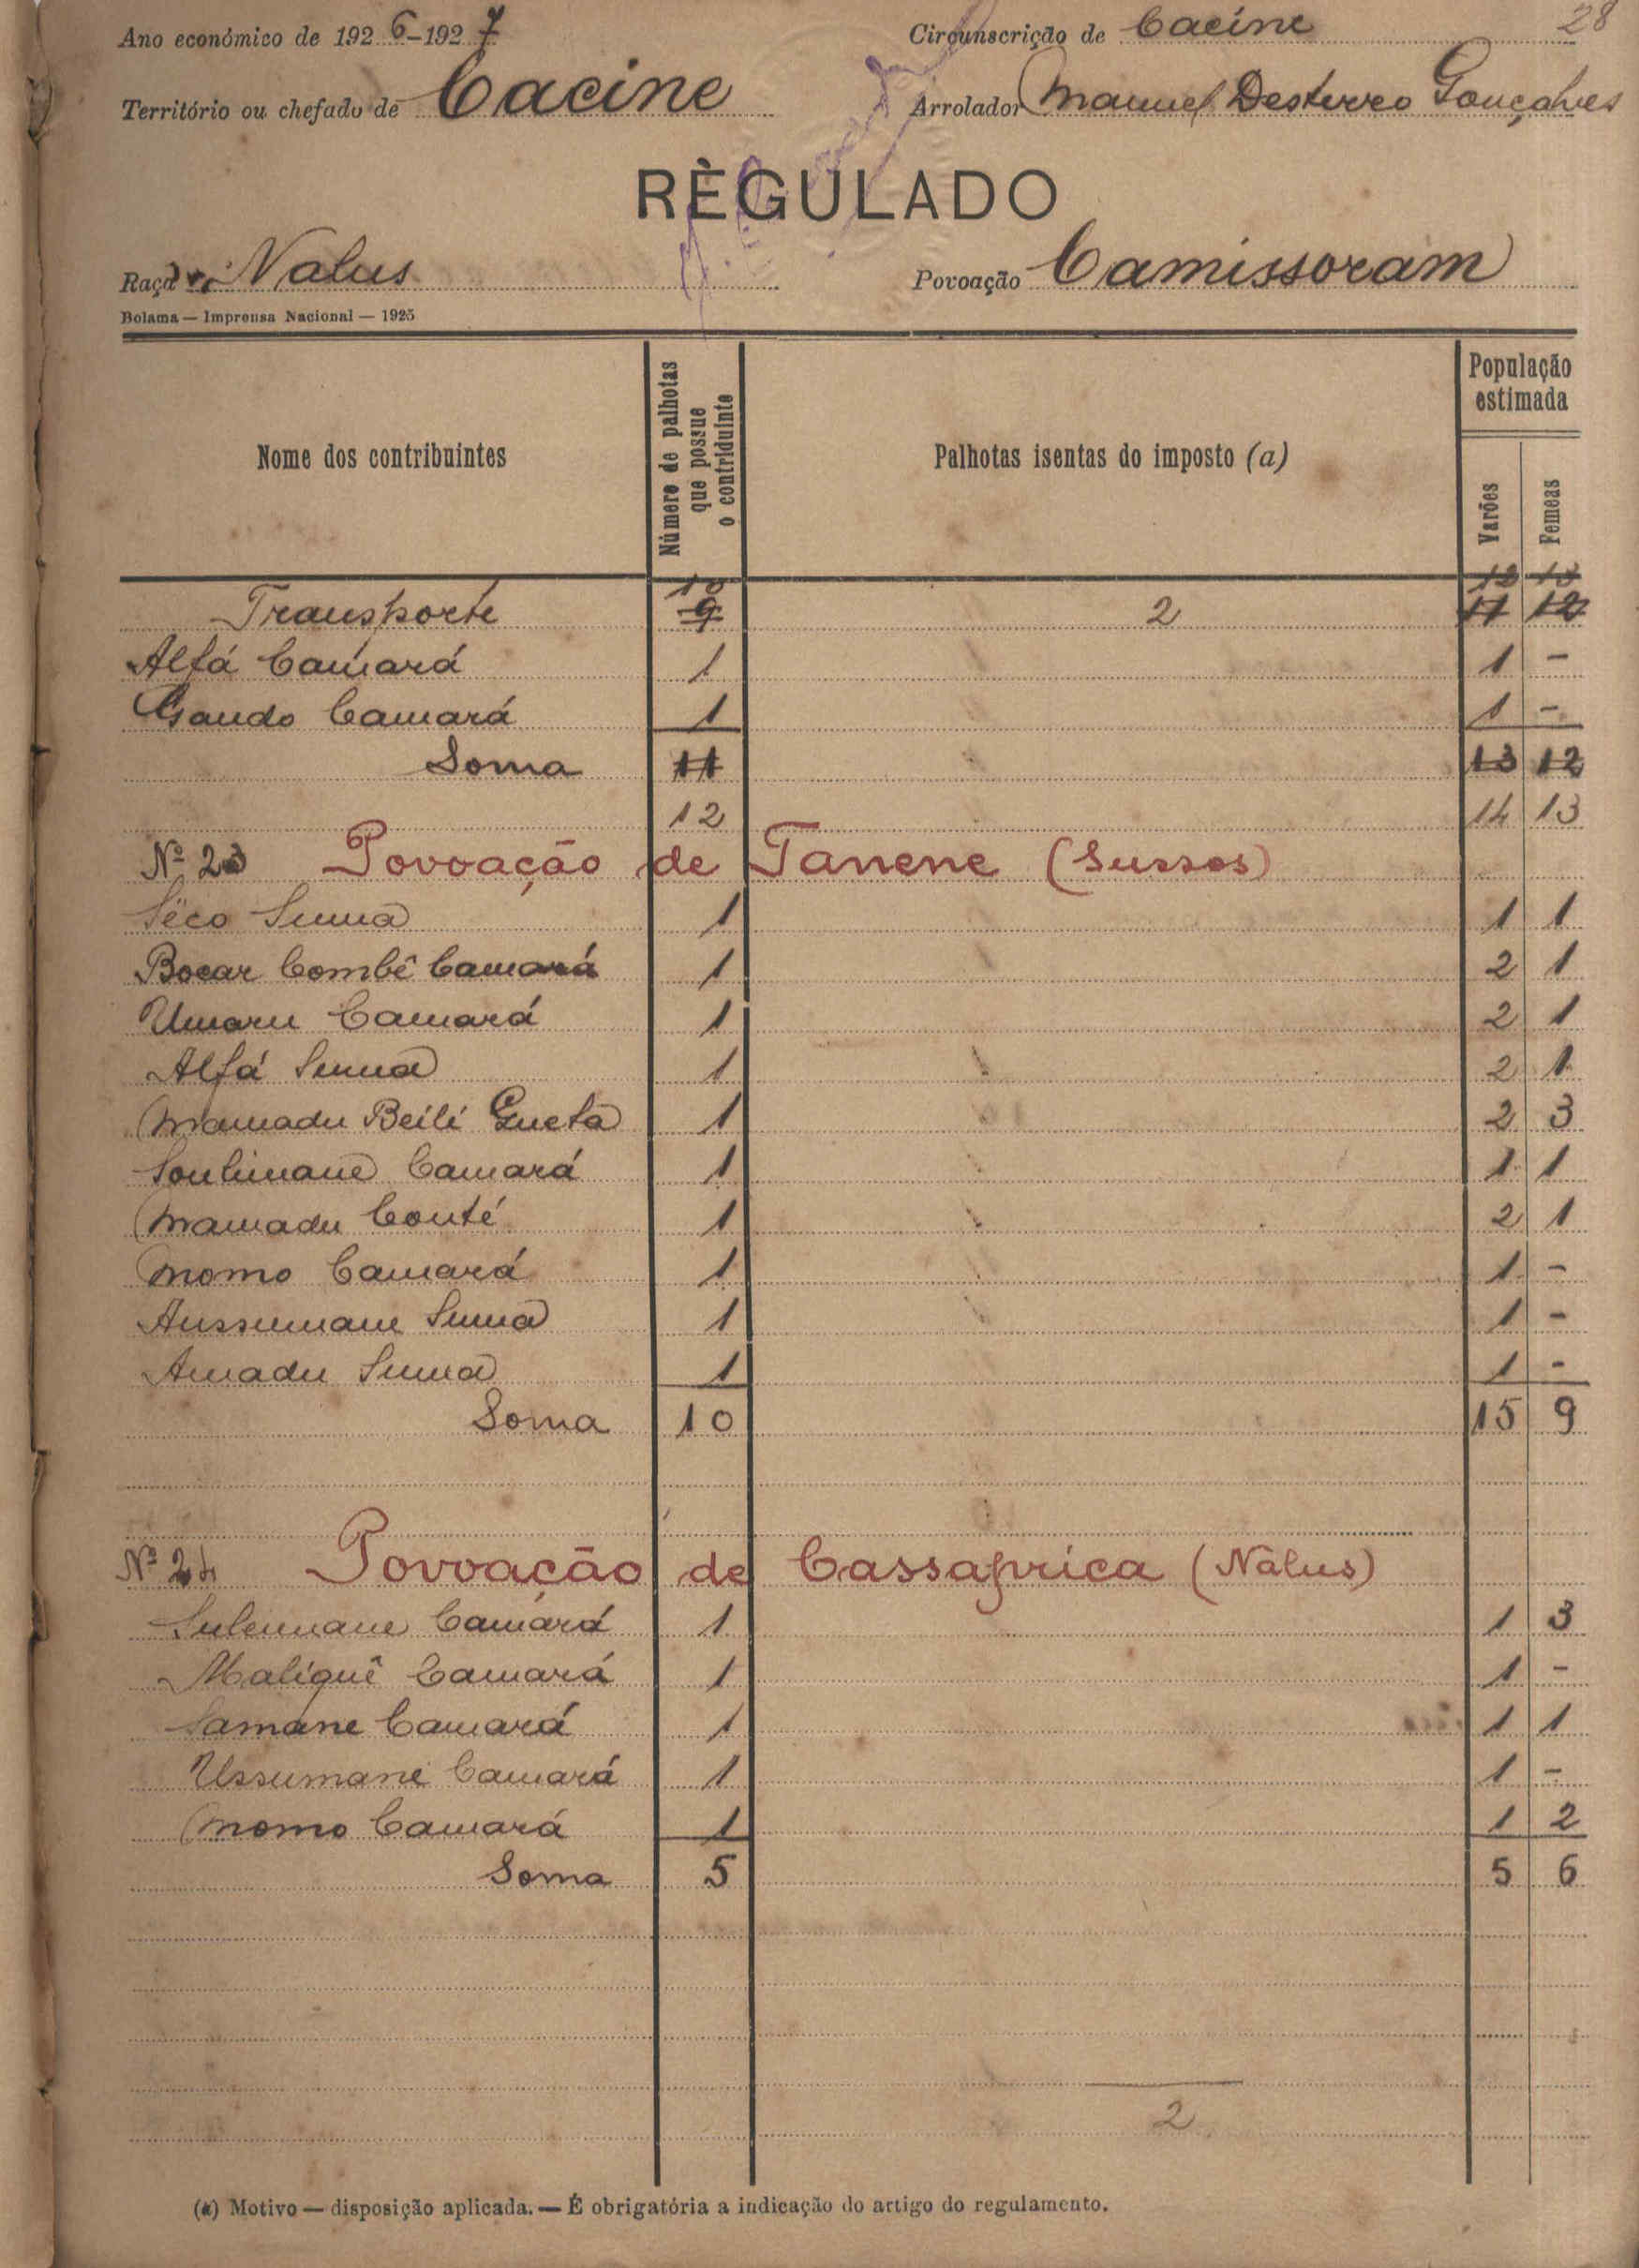 Ano económico de 1926-1927 Circunscrição de Cacine 28
Território ou chefado de Cacine Arrolador Manuel Desterro Gonçalves
RÈGULADO
Raça Nalus Povoação Camissoram
Bolama — Imprensa Nacional — 1925
Nome dos contribuintes Número de palhotas que possue o contriduinte Palhotas isentas do imposto (a) População estimada Varões Femeas
10 12 13
Transporte 9 2 11 12
Alfá Camará 1 1 -
Gaudo Camará 1 1 -
Soma 11 13 12
12 14 13
Nº 23 Povoação de Tanene (Sussos)
Sêco Suma 1 1 1
Bocar Combê Camará 1 2 1
Umaru Camará 1 2 1
Alfá Suma 1 2 1
Mamadu Beili Gueta 1 2 3
Soulimane Camará 1 1 1
Mamadu Conté 1 2 1
Momo Camará 1 1 -
Aussumane Suma 1 1 -
Amadu Suma 1 1 -
Soma 10 15 9
Nº 24 Povoação de Cassaprica (Nalus)
Suleimane Camará 1 1 3
Maliquê Camará 1 1 -
Samane Camará 1 1 1
Ussumane Camará 1 1 -
Momo Camará 1 1 2
Soma 5 5 6
2
(a) Motivo — disposição aplicada. — É obrigatória a indicação do artigo do regulamento.